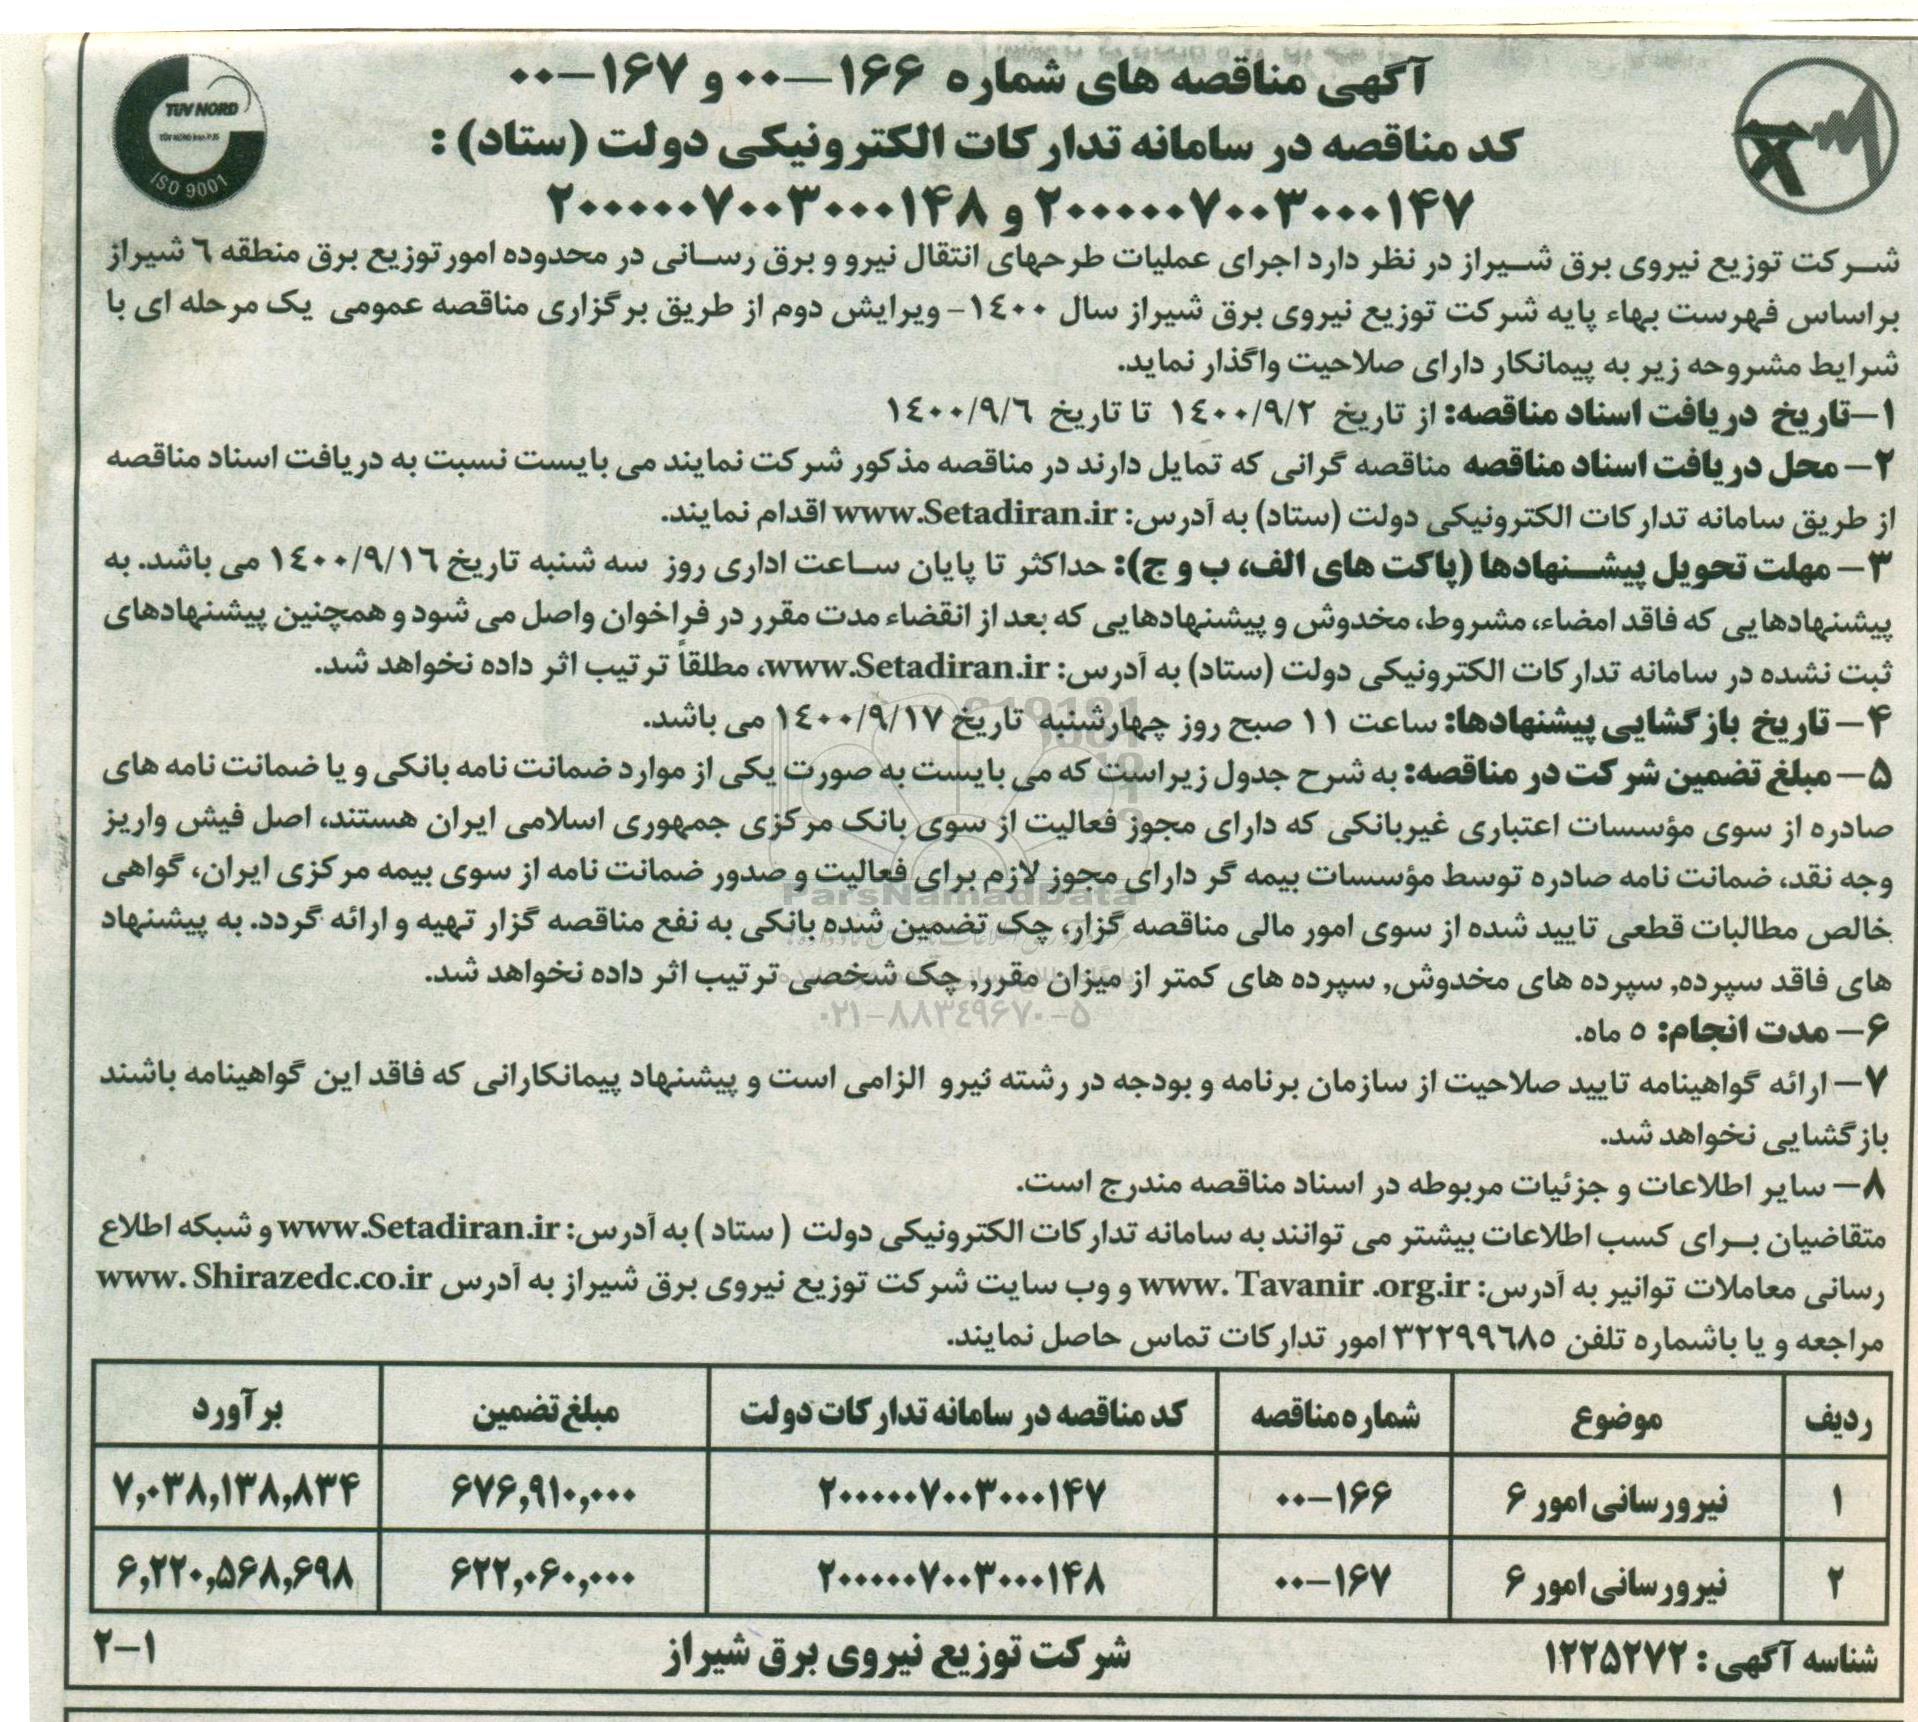 آگهی مناقصه های شماره ۱۶۶-۰۰ و ۱۶۷-۰۰
کد مناقصه در سامانه تدارکات الکترونیکی دولت (ستاد) :
۲۰۰۰۰۰۷۰۰۳۰۰۰۱۴۷ و ۲۰۰۰۰۰۷۰۰۳۰۰۰۱۴۸
TUV NORD
ISO 9001
شرکت توزیع نیروی برق شیراز در نظر دارد اجرای عملیات طرحهای انتقال نیرو و برق رسانی در محدوده امور توزیع برق منطقه ٦ شیراز
براساس فهرست بهاء پایه شرکت توزیع نیروی برق شیراز سال ۱٤۰۰- ویرایش دوم از طریق برگزاری مناقصه عمومی یک مرحله ای با
شرایط مشروحه زیر به پیمانکار دارای صلاحیت واگذار نماید.
۱-تاریخ دریافت اسناد مناقصه: از تاریخ ۱٤۰۰/۹/۲ تا تاریخ ۱٤۰۰/۹/٦
۲- محل دریافت اسناد مناقصه مناقصه گرانی که تمایل دارند در مناقصه مذکور شرکت نمایند می بایست نسبت به دریافت اسناد مناقصه
از طریق سامانه تدارکات الکترونیکی دولت (ستاد) به آدرس: www.Setadiran.ir اقدام نمایند.
۳- مهلت تحویل پیشنهادها (پاکت های الف، ب و ج): حداکثر تا پایان ساعت اداری روز سه شنبه تاریخ ۱٤۰۰/۹/۱٦ می باشد. به
پیشنهادهایی که فاقد امضاء، مشروط، مخدوش و پیشنهادهایی که بعد از انقضاء مدت مقرر در فراخوان واصل می شود و همچنین پیشنهادهای
ثبت نشده در سامانه تدارکات الکترونیکی دولت (ستاد) به آدرس: www.Setadiran.ir، مطلقاً ترتیب اثر داده نخواهد شد.
۴- تاریخ بازگشایی پیشنهادها: ساعت ۱۱ صبح روز چهارشنبه تاریخ ۱٤۰۰/۹/۱۷ می باشد.
۵- مبلغ تضمین شرکت در مناقصه: به شرح جدول زیراست که می بایست به صورت یکی از موارد ضمانت نامه بانکی و یا ضمانت نامه های
صادره از سوی مؤسسات اعتباری غیربانکی که دارای مجوز فعالیت از سوی بانک مرکزی جمهوری اسلامی ایران هستند، اصل فیش واریز
وجه نقد، ضمانت نامه صادره توسط مؤسسات بیمه گر دارای مجوز لازم برای فعالیت و صدور ضمانت نامه از سوی بیمه مرکزی ایران، گواهی
خالص مطالبات قطعی تایید شده از سوی امور مالی مناقصه گزار، چک تضمین شده بانکی به نفع مناقصه گزار تهیه و ارائه گردد. به پیشنهاد
های فاقد سپرده, سپرده های مخدوش, سپرده های کمتر از میزان مقرر, چک شخصی ترتیب اثر داده نخواهد شد.
ParsNamadData
۰۲۱-۸۸۳٤۹۶۷۰-۵
۶- مدت انجام: ٥ ماه.
۷- ارائه گواهینامه تایید صلاحیت از سازمان برنامه و بودجه در رشته نیرو الزامی است و پیشنهاد پیمانکارانی که فاقد این گواهینامه باشند
بازگشایی نخواهد شد.
۸- سایر اطلاعات و جزئیات مربوطه در اسناد مناقصه مندرج است.
متقاضیان برای کسب اطلاعات بیشتر می توانند به سامانه تدارکات الکترونیکی دولت ( ستاد ) به آدرس: www.Setadiran.ir و شبکه اطلاع
رسانی معاملات توانیر به آدرس: www. Tavanir .org.ir و وب سایت شرکت توزیع نیروی برق شیراز به آدرس www. Shirazedc.co.ir
مراجعه و یا باشماره تلفن ۳۲۲۹۹٦۸٥ امور تدارکات تماس حاصل نمایند.
ردیف موضوع شماره مناقصه کد مناقصه در سامانه تدارکات دولت مبلغ تضمین برآورد
۱ نیرورسانی امور ۶ ۱۶۶-۰۰ ۲۰۰۰۰۰۷۰۰۳۰۰۰۱۴۷ ۶۷۶,۹۱۰,۰۰۰ ۷,۰۳۸,۱۳۸,۸۳۴
۲ نیرورسانی امور ۶ ۱۶۷-۰۰ ۲۰۰۰۰۰۷۰۰۳۰۰۰۱۴۸ ۶۲۲,۰۶۰,۰۰۰ ۶,۲۲۰,۵۶۸,۶۹۸
شناسه آگهی : ۱۲۲۵۲۷۲ شرکت توزیع نیروی برق شیراز ۲-۱